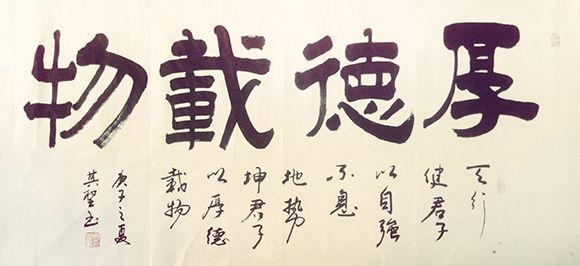 厚德載物
天行
健君子
以自強
不息
地势
坤君子
以厚德
載物
庚子之夏
其聖书